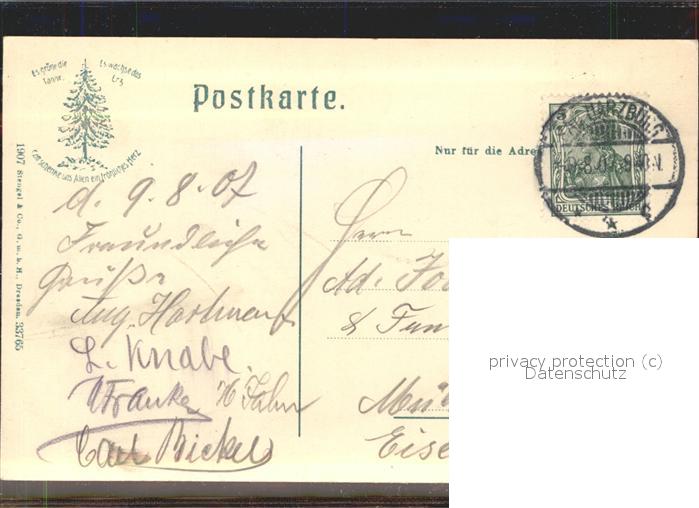 Es grüne die
Tanne,
Es wachse das
Erz,
Gott schenke uns Allen ein fröhliches Herz
Postkarte.
Nur für die Adre
HARZBURG
DEUTSCHES
1907 Stengel & Co., G. m. b. H., Dresden 33765
d. 9.8.07
Freundliche
Grüße
Aug. Hartmann
L. Knabe.
Franke
Carl Bickel
Herrn
Ad.
&
Mü
Eise
privacy protection (c)
Datenschutz